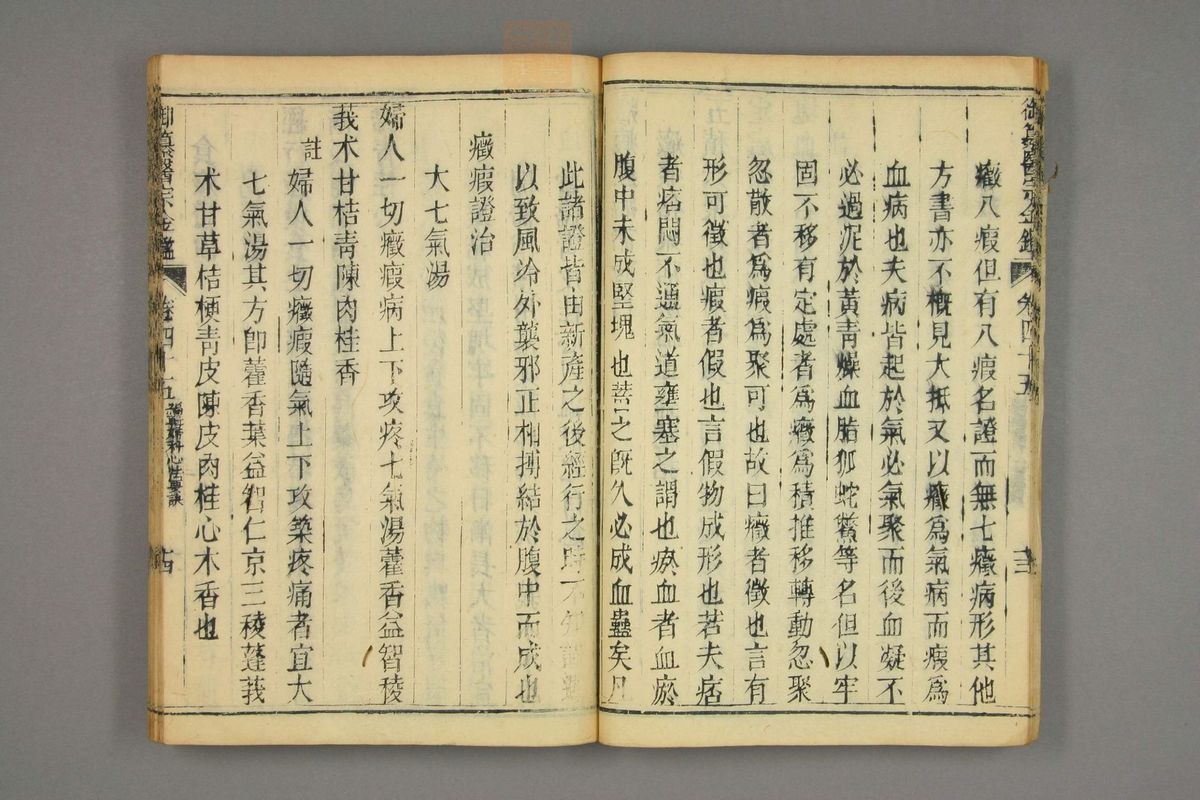 御纂醫宗金鑑 卷四十五 十三
癥八瘕但有八瘕名證而無七癥病形其他
方書亦不概見大抵又以癥爲氣病而瘕爲
血病也夫病皆起於氣必氣聚而後血凝不
必過泥於黃青燥血脂狐蛇鱉等名但以牢
固不移有定處者爲癥爲積推移轉動忽聚
忽散者爲瘕爲聚可也故曰癥者徵也言有
形可徵也瘕者假也言假物成形也若夫痞
者痞悶不通氣道壅塞之謂也瘀血者血瘀
腹中未成堅塊也蓄之既久必成血蠱矣凡
此諸證皆由新產之後經行之時不知
以致風冷外襲邪正相搏結於腹中而成也
癥瘕證治
大七氣湯
婦人一切癥瘕病上下攻疼七氣湯藿香益智稜
莪术甘桔靑陳肉桂香
註
婦人一切癥瘕隨氣上下攻築疼痛者宜大
七氣湯其方卽藿香葉益智仁京三稜蓬莪
术甘草桔梗靑皮陳皮肉桂心木香也
御纂醫宗金鑑 卷四十五 編輯婦科心法要訣 十四